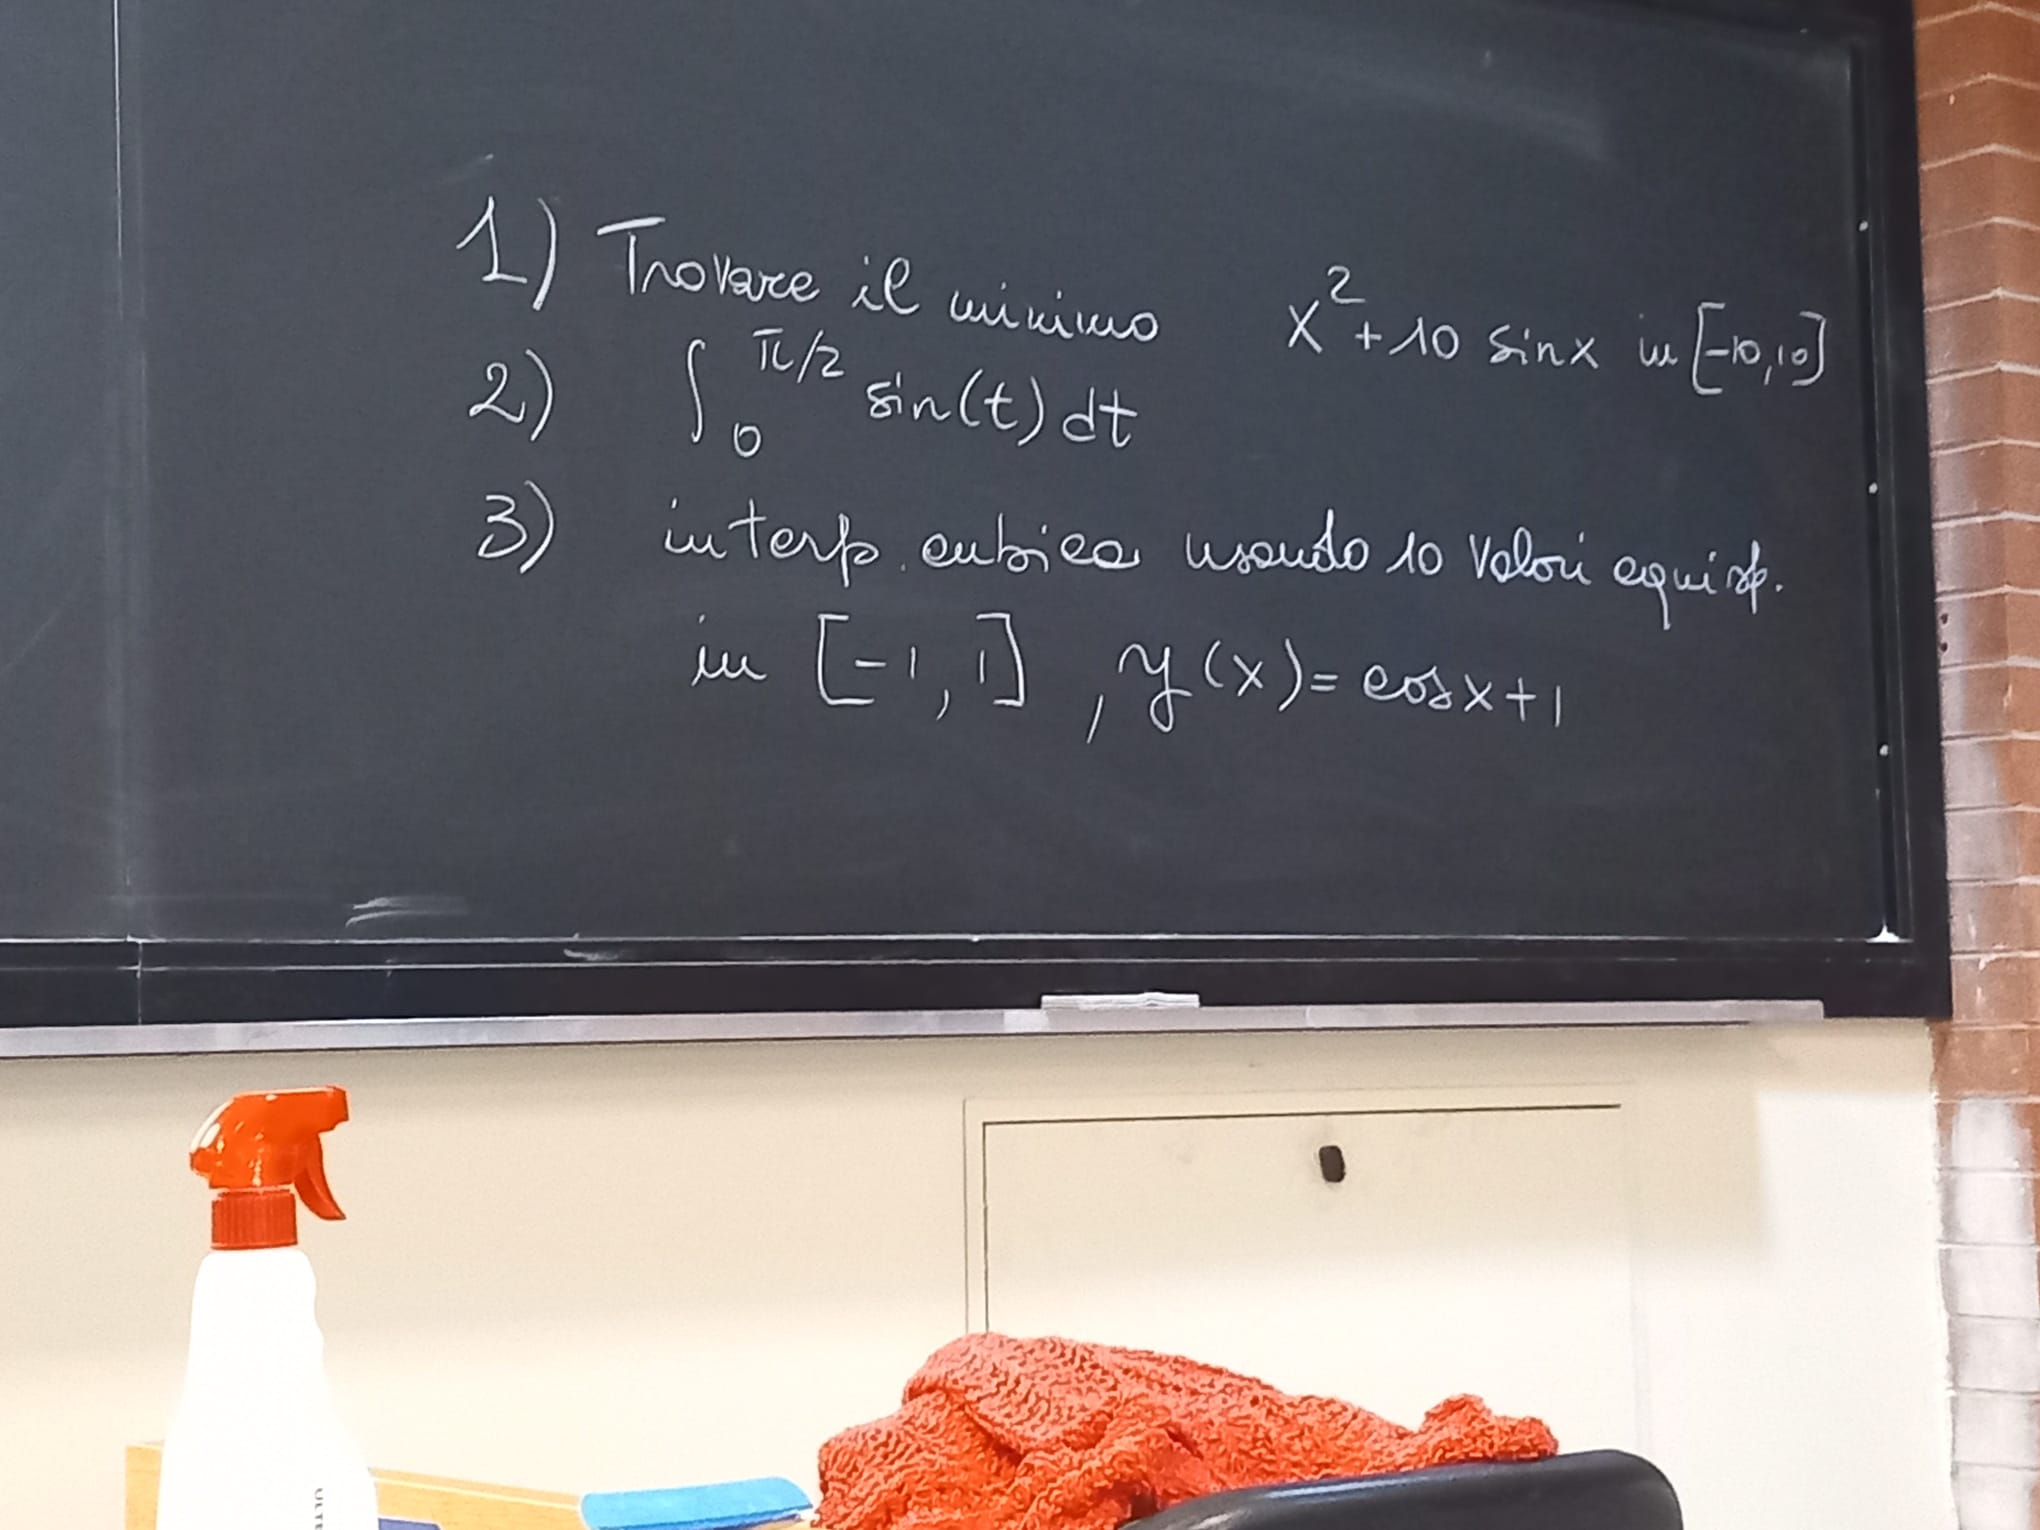 1) Trovare il minimo x² + 10 sinx in [-10,10]
2) ∫₀^π/2 sin(t) dt
3) interp. cubica usando 10 valori equisp.
in [-1, 1], y(x) = cosx + 1
ULTE